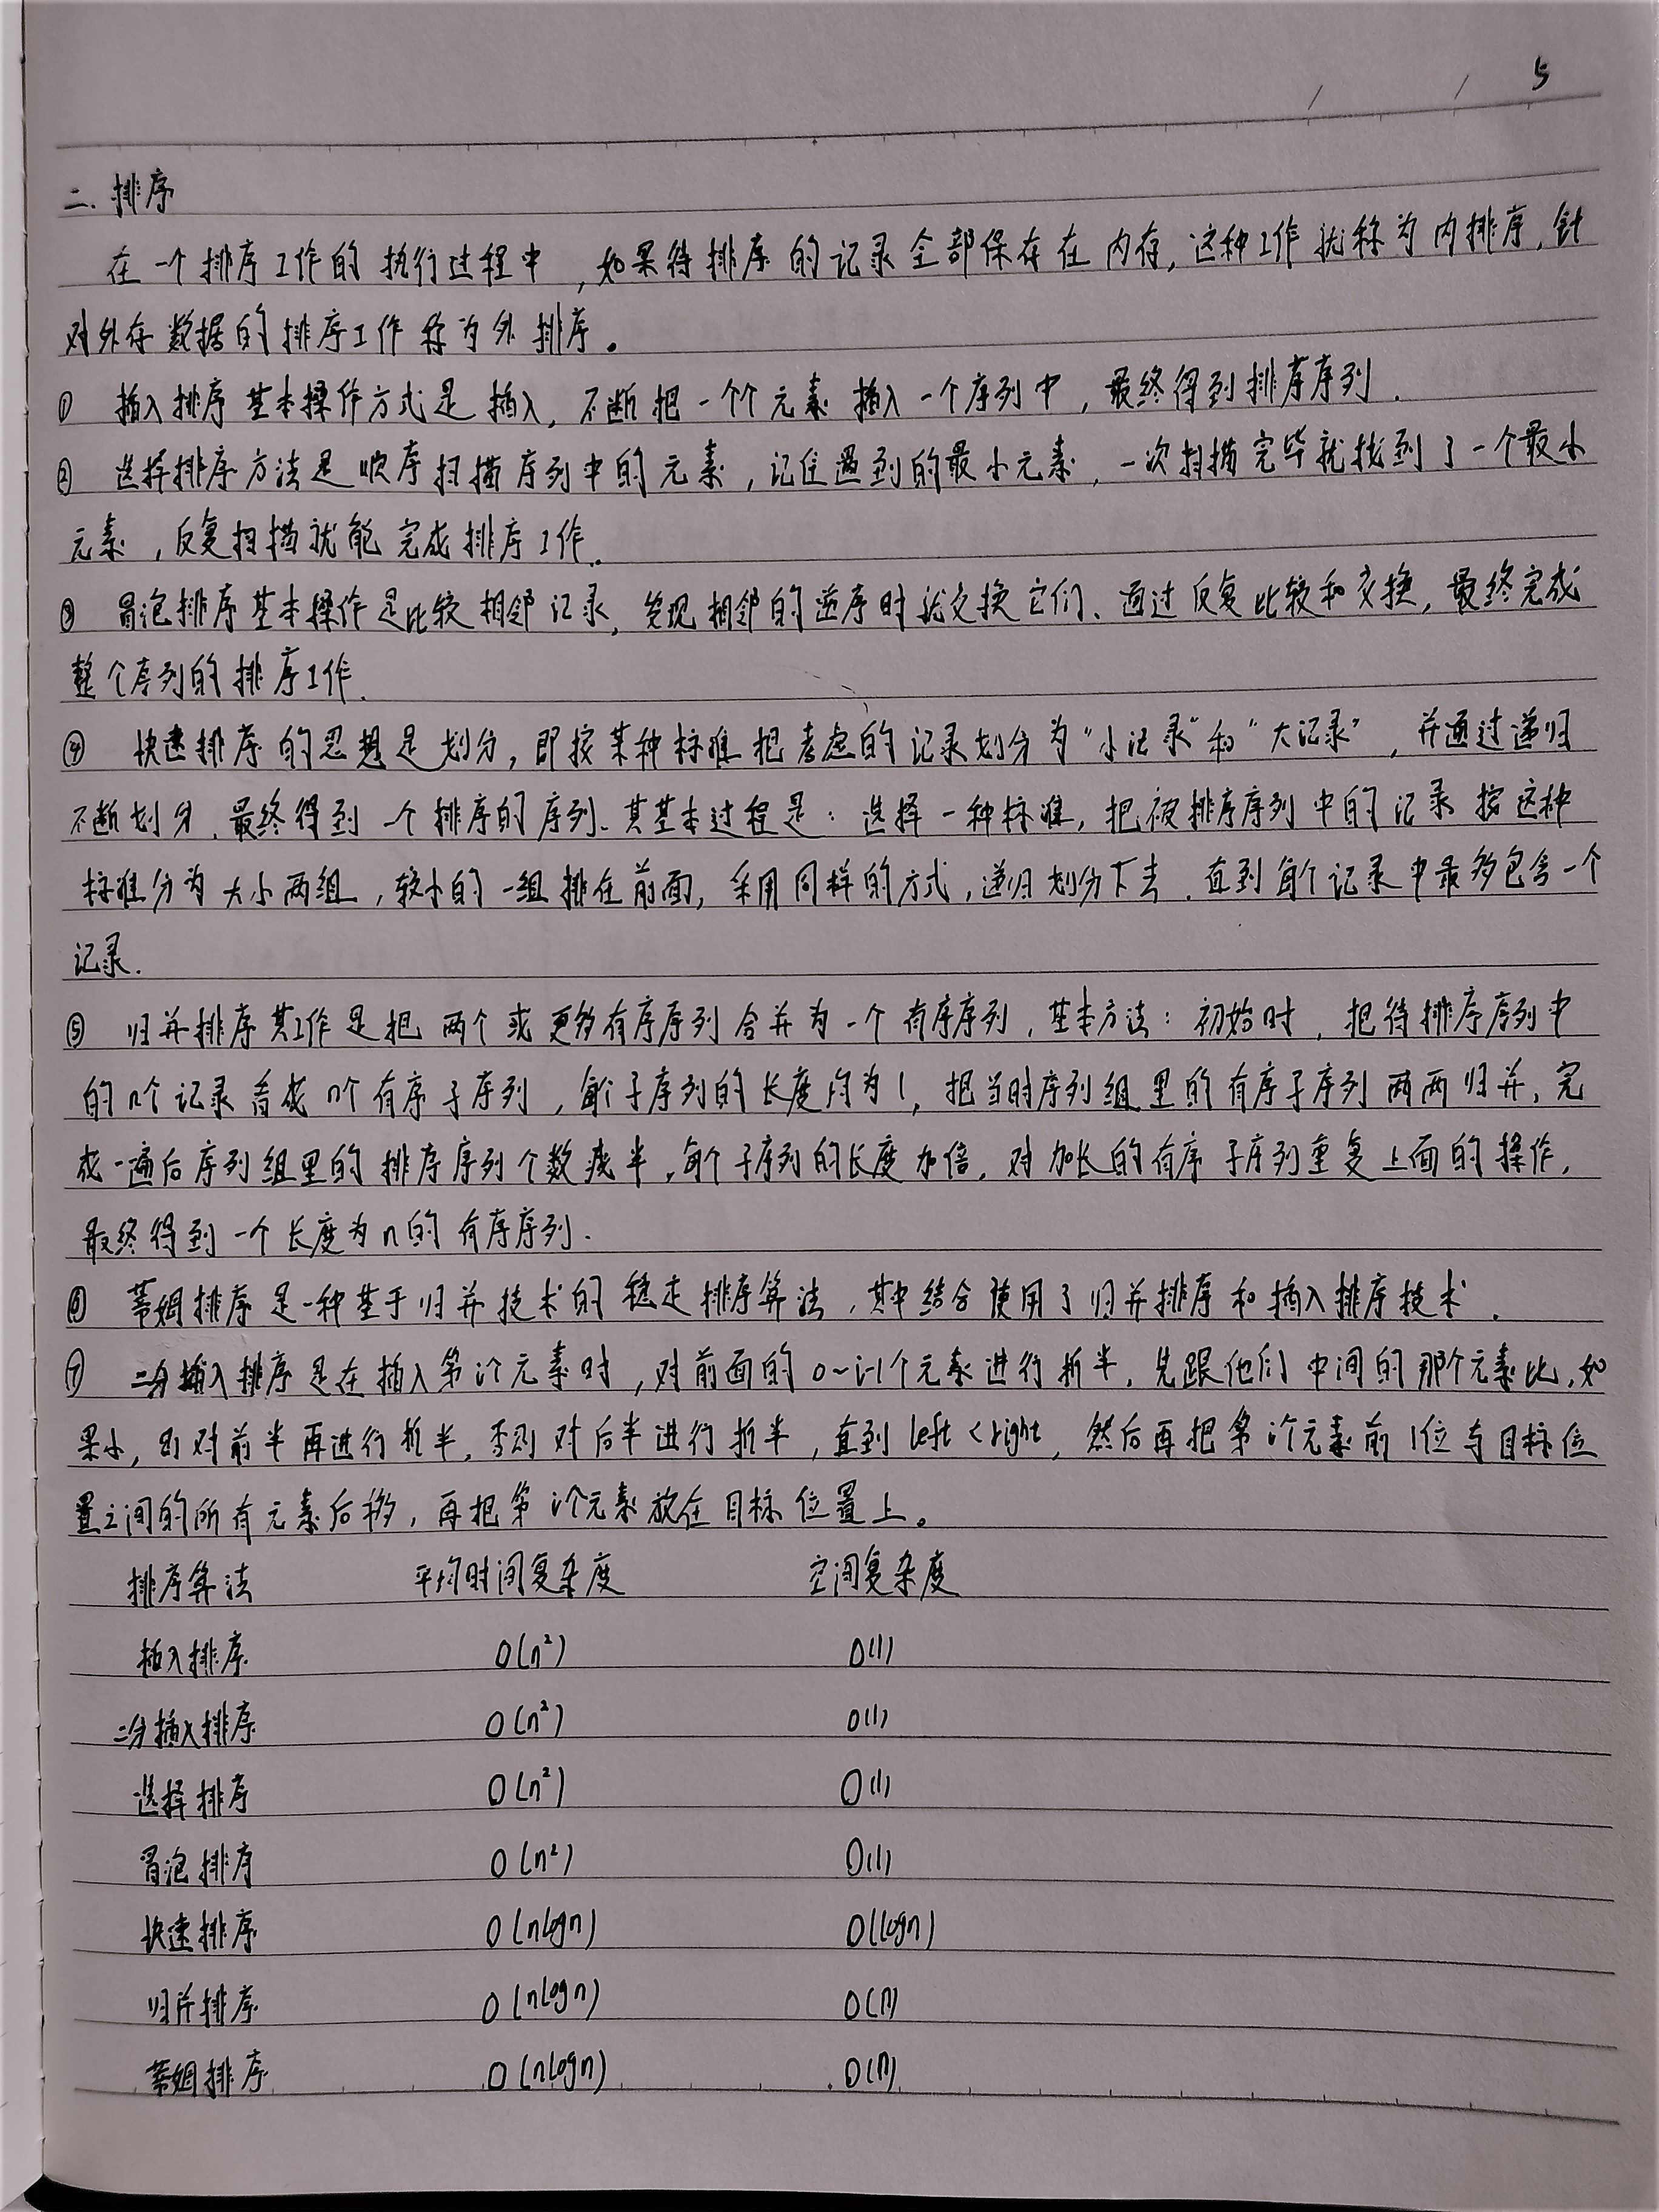 5
二. 排序
在一个排序工作的执行过程中,如果待排序的记录全部保存在内存,这种工作就称为内排序,针
对外存数据的排序工作称为外排序。
① 插入排序基本操作方式是插入,不断把一个个元素插入一个序列中,最终得到排序序列.
② 选择排序方法是顺序扫描序列中的元素,记住遇到的最小元素,一次扫描完毕就找到了一个最小
元素,反复扫描就能完成排序工作.
③ 冒泡排序基本操作是比较相邻记录,发现相邻的逆序时就交换它们、通过反复比较和交换,最终完成
整个序列的排序工作.
④ 快速排序的思想是划分,即按某种标准把考虑的记录划分为“小记录”和“大记录”,并通过递归
不断划分,最终得到一个排序的序列、其基本过程是:选择一种标准,把被排序序列中的记录按这种
标准分为大小两组,较小的一组排在前面,采用同样的方式,递归划分下去.直到每个记录中最多包含一个
记录.
⑤ 归并排序其工作是把两个或更多有序序列合并为一个有序序列,基本方法:初始时,把待排序序列中
的n个记录看成n个有序子序列,每个子序列的长度均为1,把当时序列组里的有序子序列两两归并,完
成一遍后序列组里的排序序列个数减半,每个子序列的长度加倍,对加长的有序子序列重复上面的操作,
最终得到一个长度为n的有序序列.
⑥ 蒂姆排序是一种基于归并技术的稳定排序算法,其中结合使用了归并排序和插入排序技术.
⑦ 二分插入排序是在插入第i个元素时,对前面的0~i-1个元素进行折半,先跟他们中间的那个元素比,如
果小,则对前半再进行折半,否则对后半进行折半,直到left<right,然后再把第i个元素前1位与目标位
置之间的所有元素后移,再把第i个元素放在目标位置上。
排序算法 平均时间复杂度 空间复杂度
插入排序 O(n²) O(1)
二分插入排序 O(n²) O(1)
选择排序 O(n²) O(1)
冒泡排序 O(n²) O(1)
快速排序 O(nlogn) O(logn)
归并排序 O(nlogn) O(n)
蒂姆排序 O(nlogn) O(n)